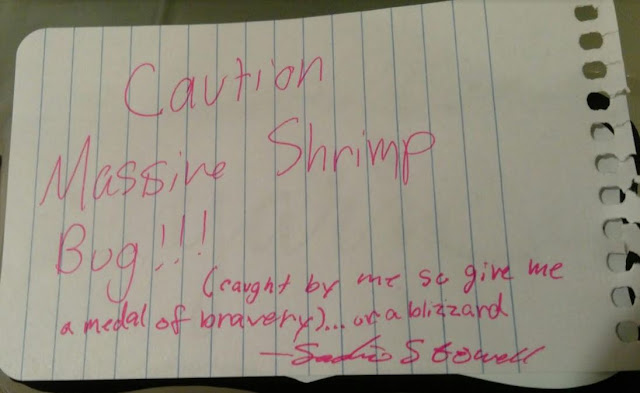 Caution
Massive Shrimp
Bug!!!
(caught by me so give me
a medal of bravery)... or a blizzard
— S Stowell